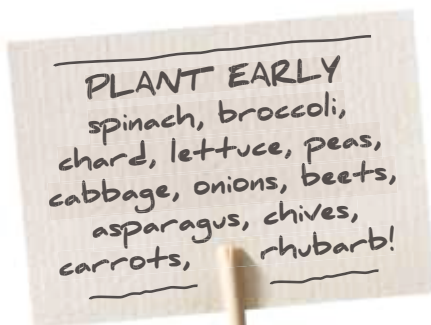 PLANT EARLY
spinach, broccoli,
chard, lettuce, peas,
cabbage, onions, beets,
asparagus, chives,
carrots, rhubarb!